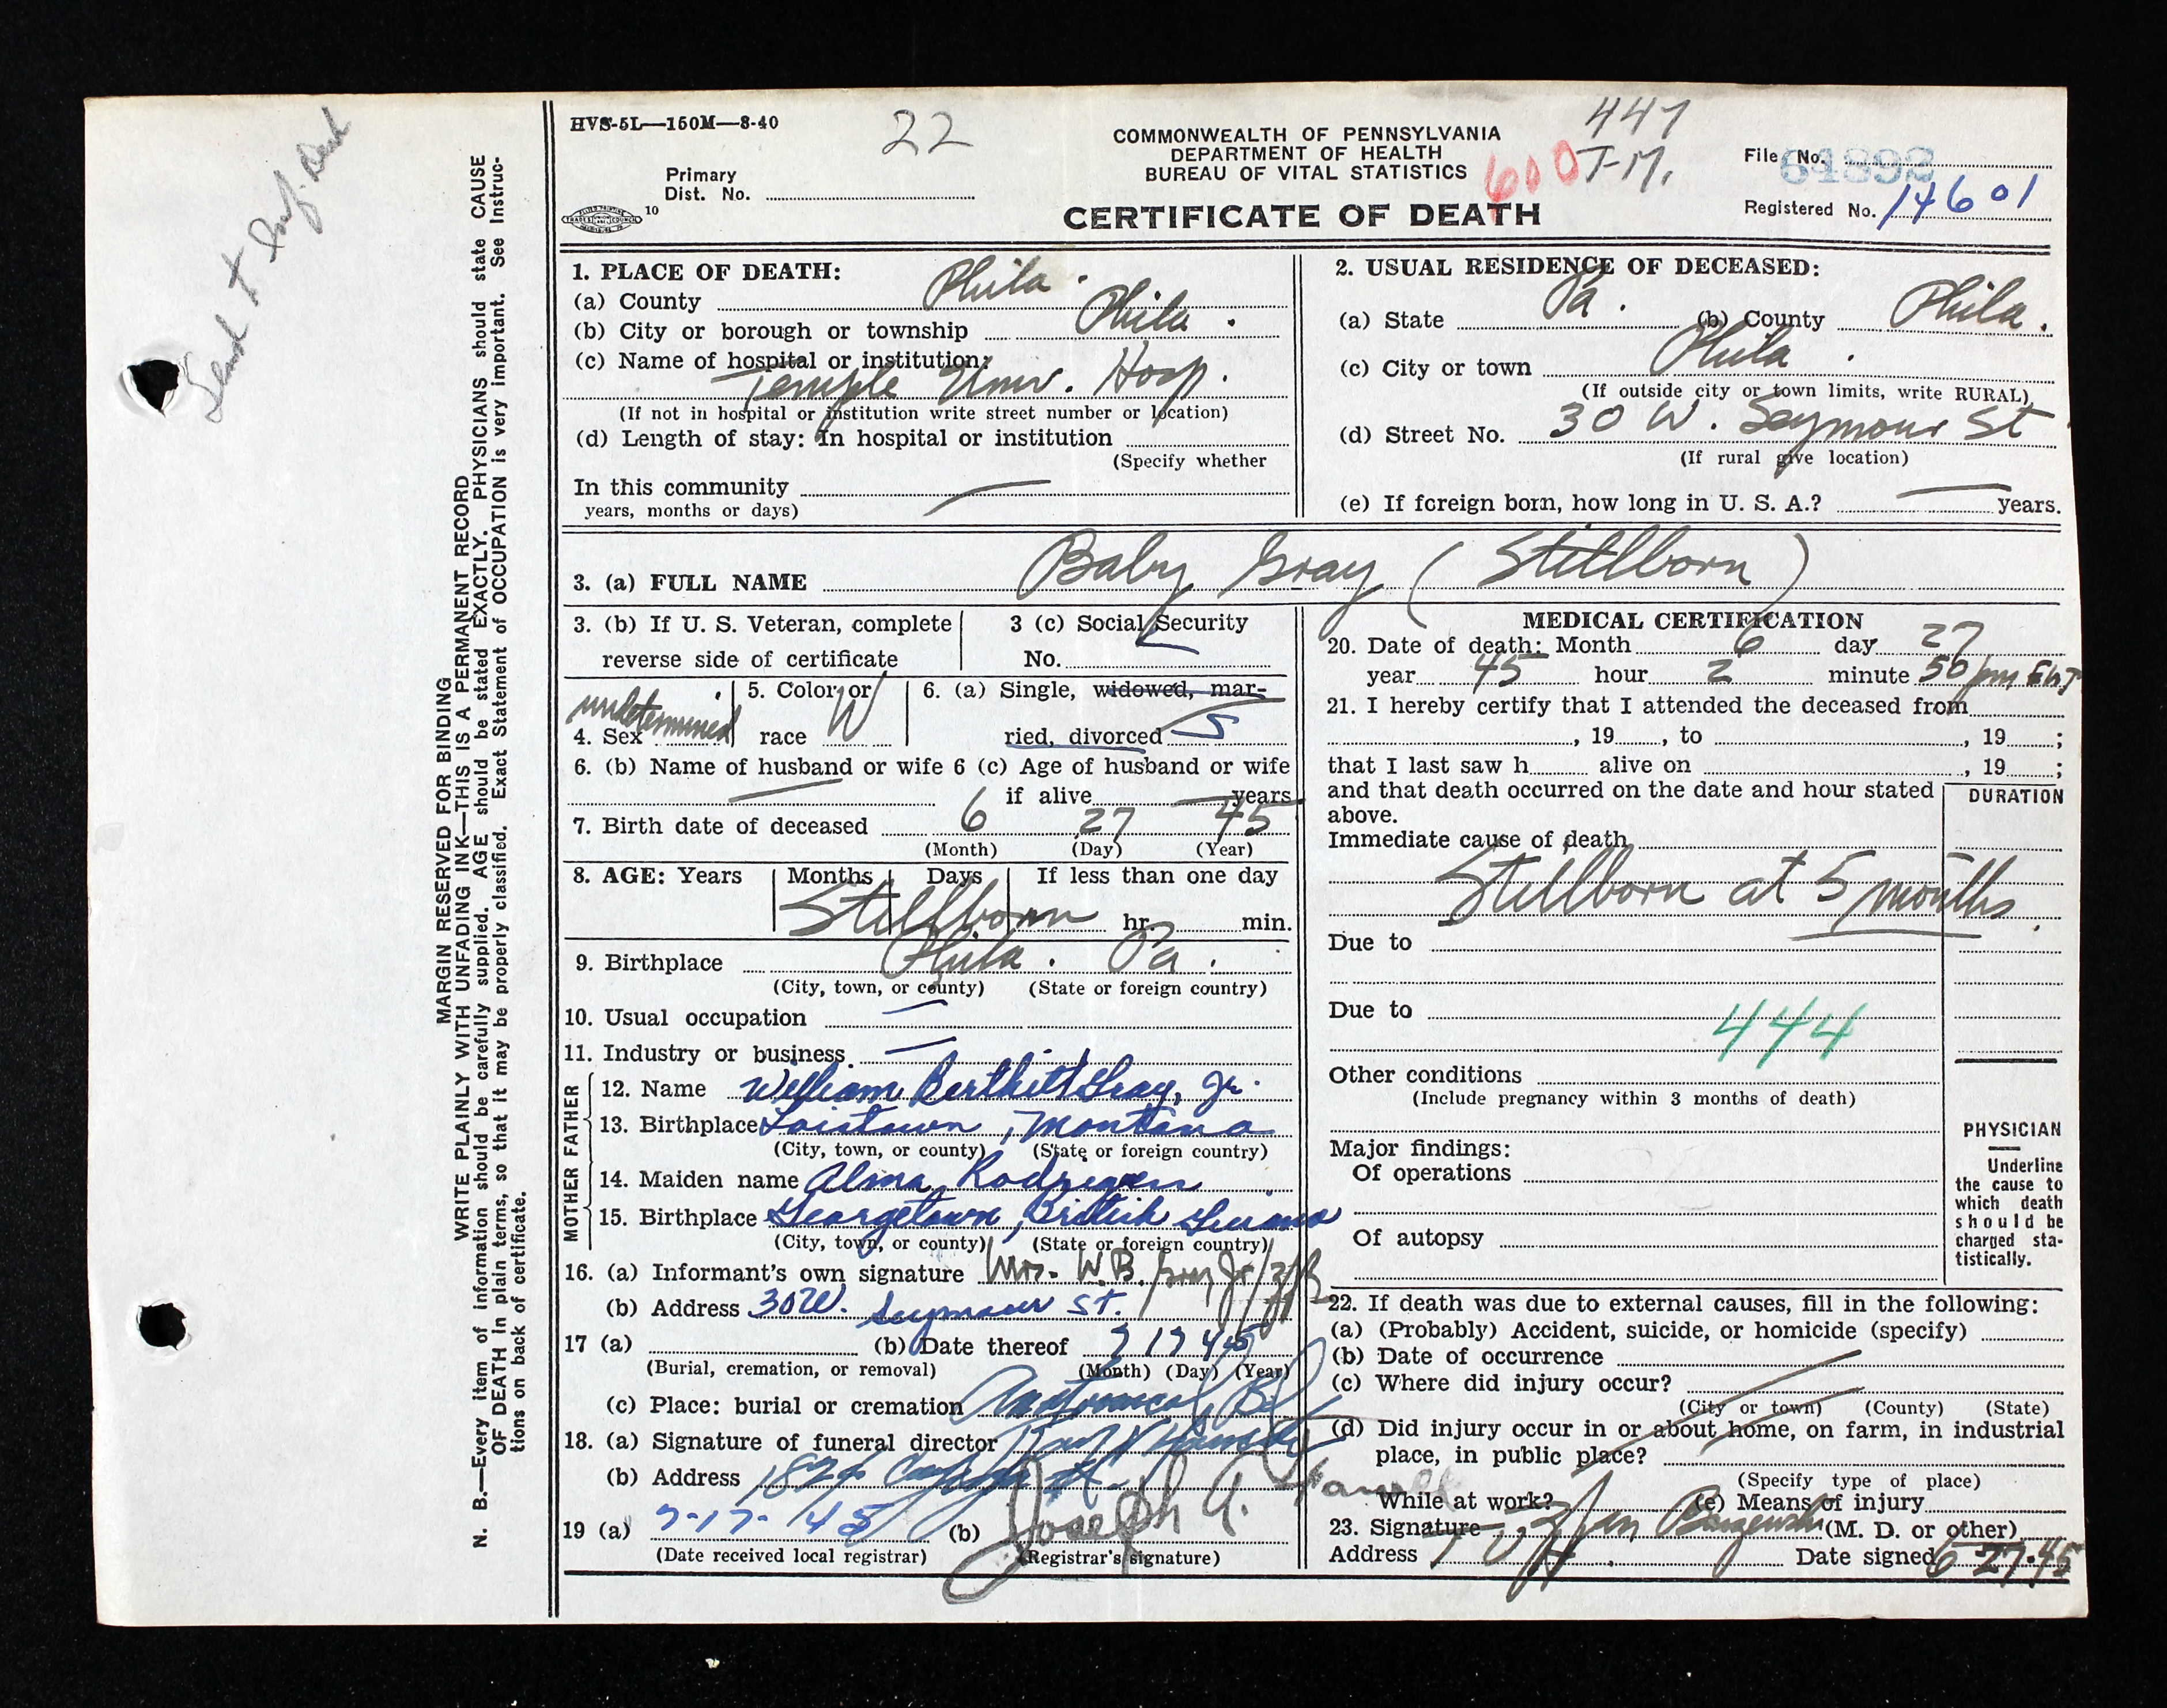 HVS-5L—150M—8-40
22
COMMONWEALTH OF PENNSYLVANIA
DEPARTMENT OF HEALTH
BUREAU OF VITAL STATISTICS
CERTIFICATE OF DEATH
447
600
Primary
Dist. No.
10
File No. 64892
Registered No. 14601
1. PLACE OF DEATH:
(a) County Phila.
(b) City or borough or township Phila.
(c) Name of hospital or institution:
Temple Univ. Hosp.
(If not in hospital or institution write street number or location)
(d) Length of stay: In hospital or institution
(Specify whether
In this community —
years, months or days)
2. USUAL RESIDENCE OF DECEASED:
(a) State Pa. (b) County Phila.
(c) City or town Phila.
(If outside city or town limits, write RURAL)
(d) Street No. 30 W. Seymour St
(If rural give location)
(e) If foreign born, how long in U. S. A.? — years.
3. (a) FULL NAME Baby Gray (Stillborn)
3. (b) If U. S. Veteran, complete
reverse side of certificate
3 (c) Social Security
No.
4. Sex undetermined
5. Color or
race W
6. (a) Single, widowed, mar-
ried, divorced S
6. (b) Name of husband or wife 6 (c) Age of husband or wife
— if alive — years
7. Birth date of deceased 6 27 45
(Month) (Day) (Year)
8. AGE: Years Months Days If less than one day
Stillborn hr. min.
9. Birthplace Phila. Pa.
(City, town, or county) (State or foreign country)
10. Usual occupation —
11. Industry or business —
FATHER
12. Name William Gray, Jr.
13. Birthplace Montana
(City, town, or county) (State or foreign country)
MOTHER
14. Maiden name Alma
15. Birthplace Georgetown, British Guiana
(City, town, or county) (State or foreign country)
16. (a) Informant's own signature Mrs. W.B. Gray Jr
(b) Address 30 W. Seymour St.
17 (a) (b) Date thereof 7 17 45
(Burial, cremation, or removal) (Month) (Day) (Year)
(c) Place: burial or cremation Anatomical Bd
18. (a) Signature of funeral director
(b) Address
19 (a) 7-17-45 (b) Joseph A.
(Date received local registrar) (Registrar's signature)
MEDICAL CERTIFICATION
20. Date of death: Month 6 day 27
year 45 hour 2 minute 50 pm EWT
21. I hereby certify that I attended the deceased from
, 19 , to , 19 ;
that I last saw h alive on , 19 ;
and that death occurred on the date and hour stated
above.
DURATION
Immediate cause of death
Stillborn at 5 months
Due to
Due to
444
Other conditions
(Include pregnancy within 3 months of death)
Major findings:
Of operations
Of autopsy
PHYSICIAN
Underline
the cause to
which death
should be
charged sta-
tistically.
22. If death was due to external causes, fill in the following:
(a) (Probably) Accident, suicide, or homicide (specify)
(b) Date of occurrence
(c) Where did injury occur?
(City or town) (County) (State)
(d) Did injury occur in or about home, on farm, in industrial
place, in public place?
(Specify type of place)
While at work? (e) Means of injury
23. Signature (M. D. or other)
Address Date signed 6-27-45
MARGIN RESERVED FOR BINDING
WRITE PLAINLY WITH UNFADING INK—THIS IS A PERMANENT RECORD
N. B.—Every item of information should be carefully supplied. AGE should be stated EXACTLY. PHYSICIANS should state CAUSE
OF DEATH in plain terms, so that it may be properly classified. Exact Statement of OCCUPATION is very important. See Instruc-
tions on back of certificate.